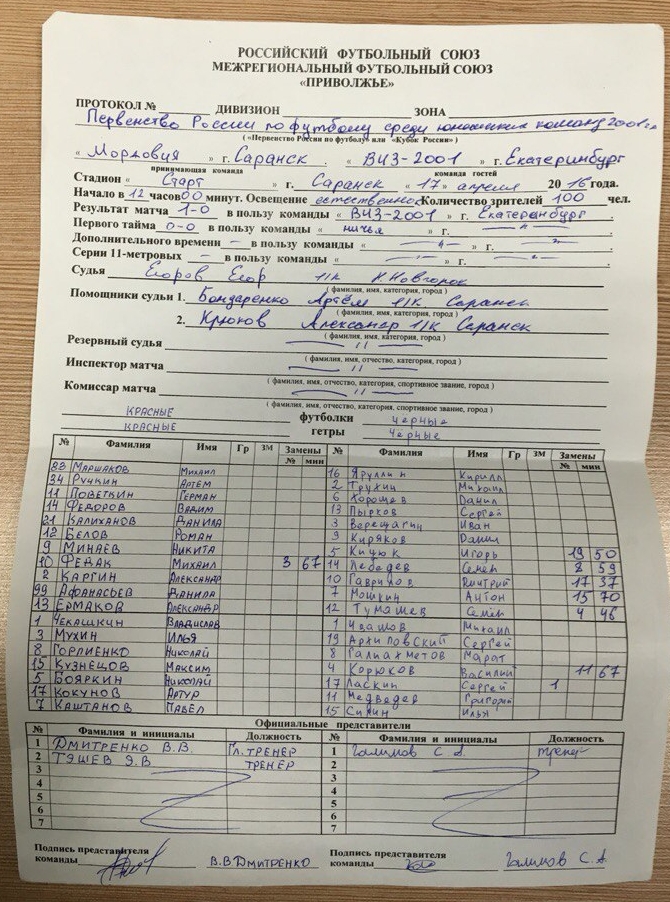 РОССИЙСКИЙ ФУТБОЛЬНЫЙ СОЮЗ
МЕЖРЕГИОНАЛЬНЫЙ ФУТБОЛЬНЫЙ СОЮЗ
«ПРИВОЛЖЬЕ»
ПРОТОКОЛ № ДИВИЗИОН ЗОНА
Первенство России по футболу среди юношеских команд 2001 г.р
( «Первенство России по футболу» или «Кубок России» )
« Мордовия » г. Саранск. « ВИЗ-2001 » г. Екатеринбург
принимающая команда команда гостей
Стадион « Старт » г. Саранск « 17 » апреля 2016 года.
Начало в 12 часов 00 минут. Освещение естественное Количество зрителей 100 чел.
Результат матча 1-0 в пользу команды « ВИЗ-2001 » г. Екатеринбург
Первого тайма 0-0 в пользу команды « ничья » г. — " —
Дополнительного времени — в пользу команды « — " — » г. — " —
Серии 11-метровых — в пользу команды « — " — » г. — " —
Судья Егоров Егор 1/к Н.Новгород
(фамилия, имя, категория, город)
Помощники судьи 1. Бондаренко Артём 1/к Саранск
(фамилия, имя, категория, город)
2. Крюков Александр 1/к Саранск
(фамилия, имя, категория, город)
Резервный судья — " —
(фамилия, имя, отчество, категория, город)
Инспектор матча — " —
(фамилия, имя, отчество, категория, спортивное звание, город)
Комиссар матча — " —
(фамилия, имя, отчество, категория, спортивное звание, город)
КРАСНЫЕ футболки черные
КРАСНЫЕ гетры черные
№ Фамилия Имя Гр ЗМ Замены № Фамилия Имя Гр ЗМ Замены
№ мин № мин
33 МАРШАКОВ МИХАИЛ 16 Яруллин Кирилл
34 РУЧКИН АРТЁМ 2 Трухин Михаил
11 ПОВЕТКИН ГЕРМАН 6 Хорошев Данил
14 ФЕДОРОВ ВАДИМ 13 Пырков Сергей
21 КАЛИХАНОВ ДАНИЛА 3 Верещагин Иван
12 БЕЛОВ РОМАН 9 Киряков Данил
9 МИНАЕВ НИКИТА 5 Кицюк Игорь 19 50
10 ФЕДАК МИХАИЛ 3 67 14 Лебедев Семен 8 59
2 КАРГИН АЛЕКСАНДР 10 Гаврилов Дмитрий 17 37
99 АФАНАСЬЕВ ДАНИЛА 7 Мошкин Антон 15 70
13 ЕРМАКОВ АЛЕКСАНДР 12 Тумашев Семён 4 46
1 ЧЕКАШКИН ВЛАДИСЛАВ 1 Ивашов Михаил
3 МУХИН ИЛЬЯ 19 Архиповский Сергей
8 ГОРЛИЕНКО НИКОЛАЙ 8 Галиахметов Марат
15 КУЗНЕЦОВ МАКСИМ 4 Корюков Василий 11 67
5 БОЯРКИН НИКОЛАЙ 17 Ласкин Сергей 1
17 КОКУНОВ АРТУР 11 Медведев Григорий
7 КАШТАНОВ ПАВЕЛ 15 Силин Илья
Официальные представители
№ Фамилия и инициалы Должность № Фамилия и инициалы Должность
1 ДМИТРЕНКО В.В. ГЛ.ТРЕНЕР 1 Галимов С А. тренер
2 ТЯШЕВ Я.В ТРЕНЕР 2
3 3
4 4
5 5
6 6
7 7
Подпись представителя команды В.В ДМИТРЕНКО Подпись представителя команды Галимов С.А